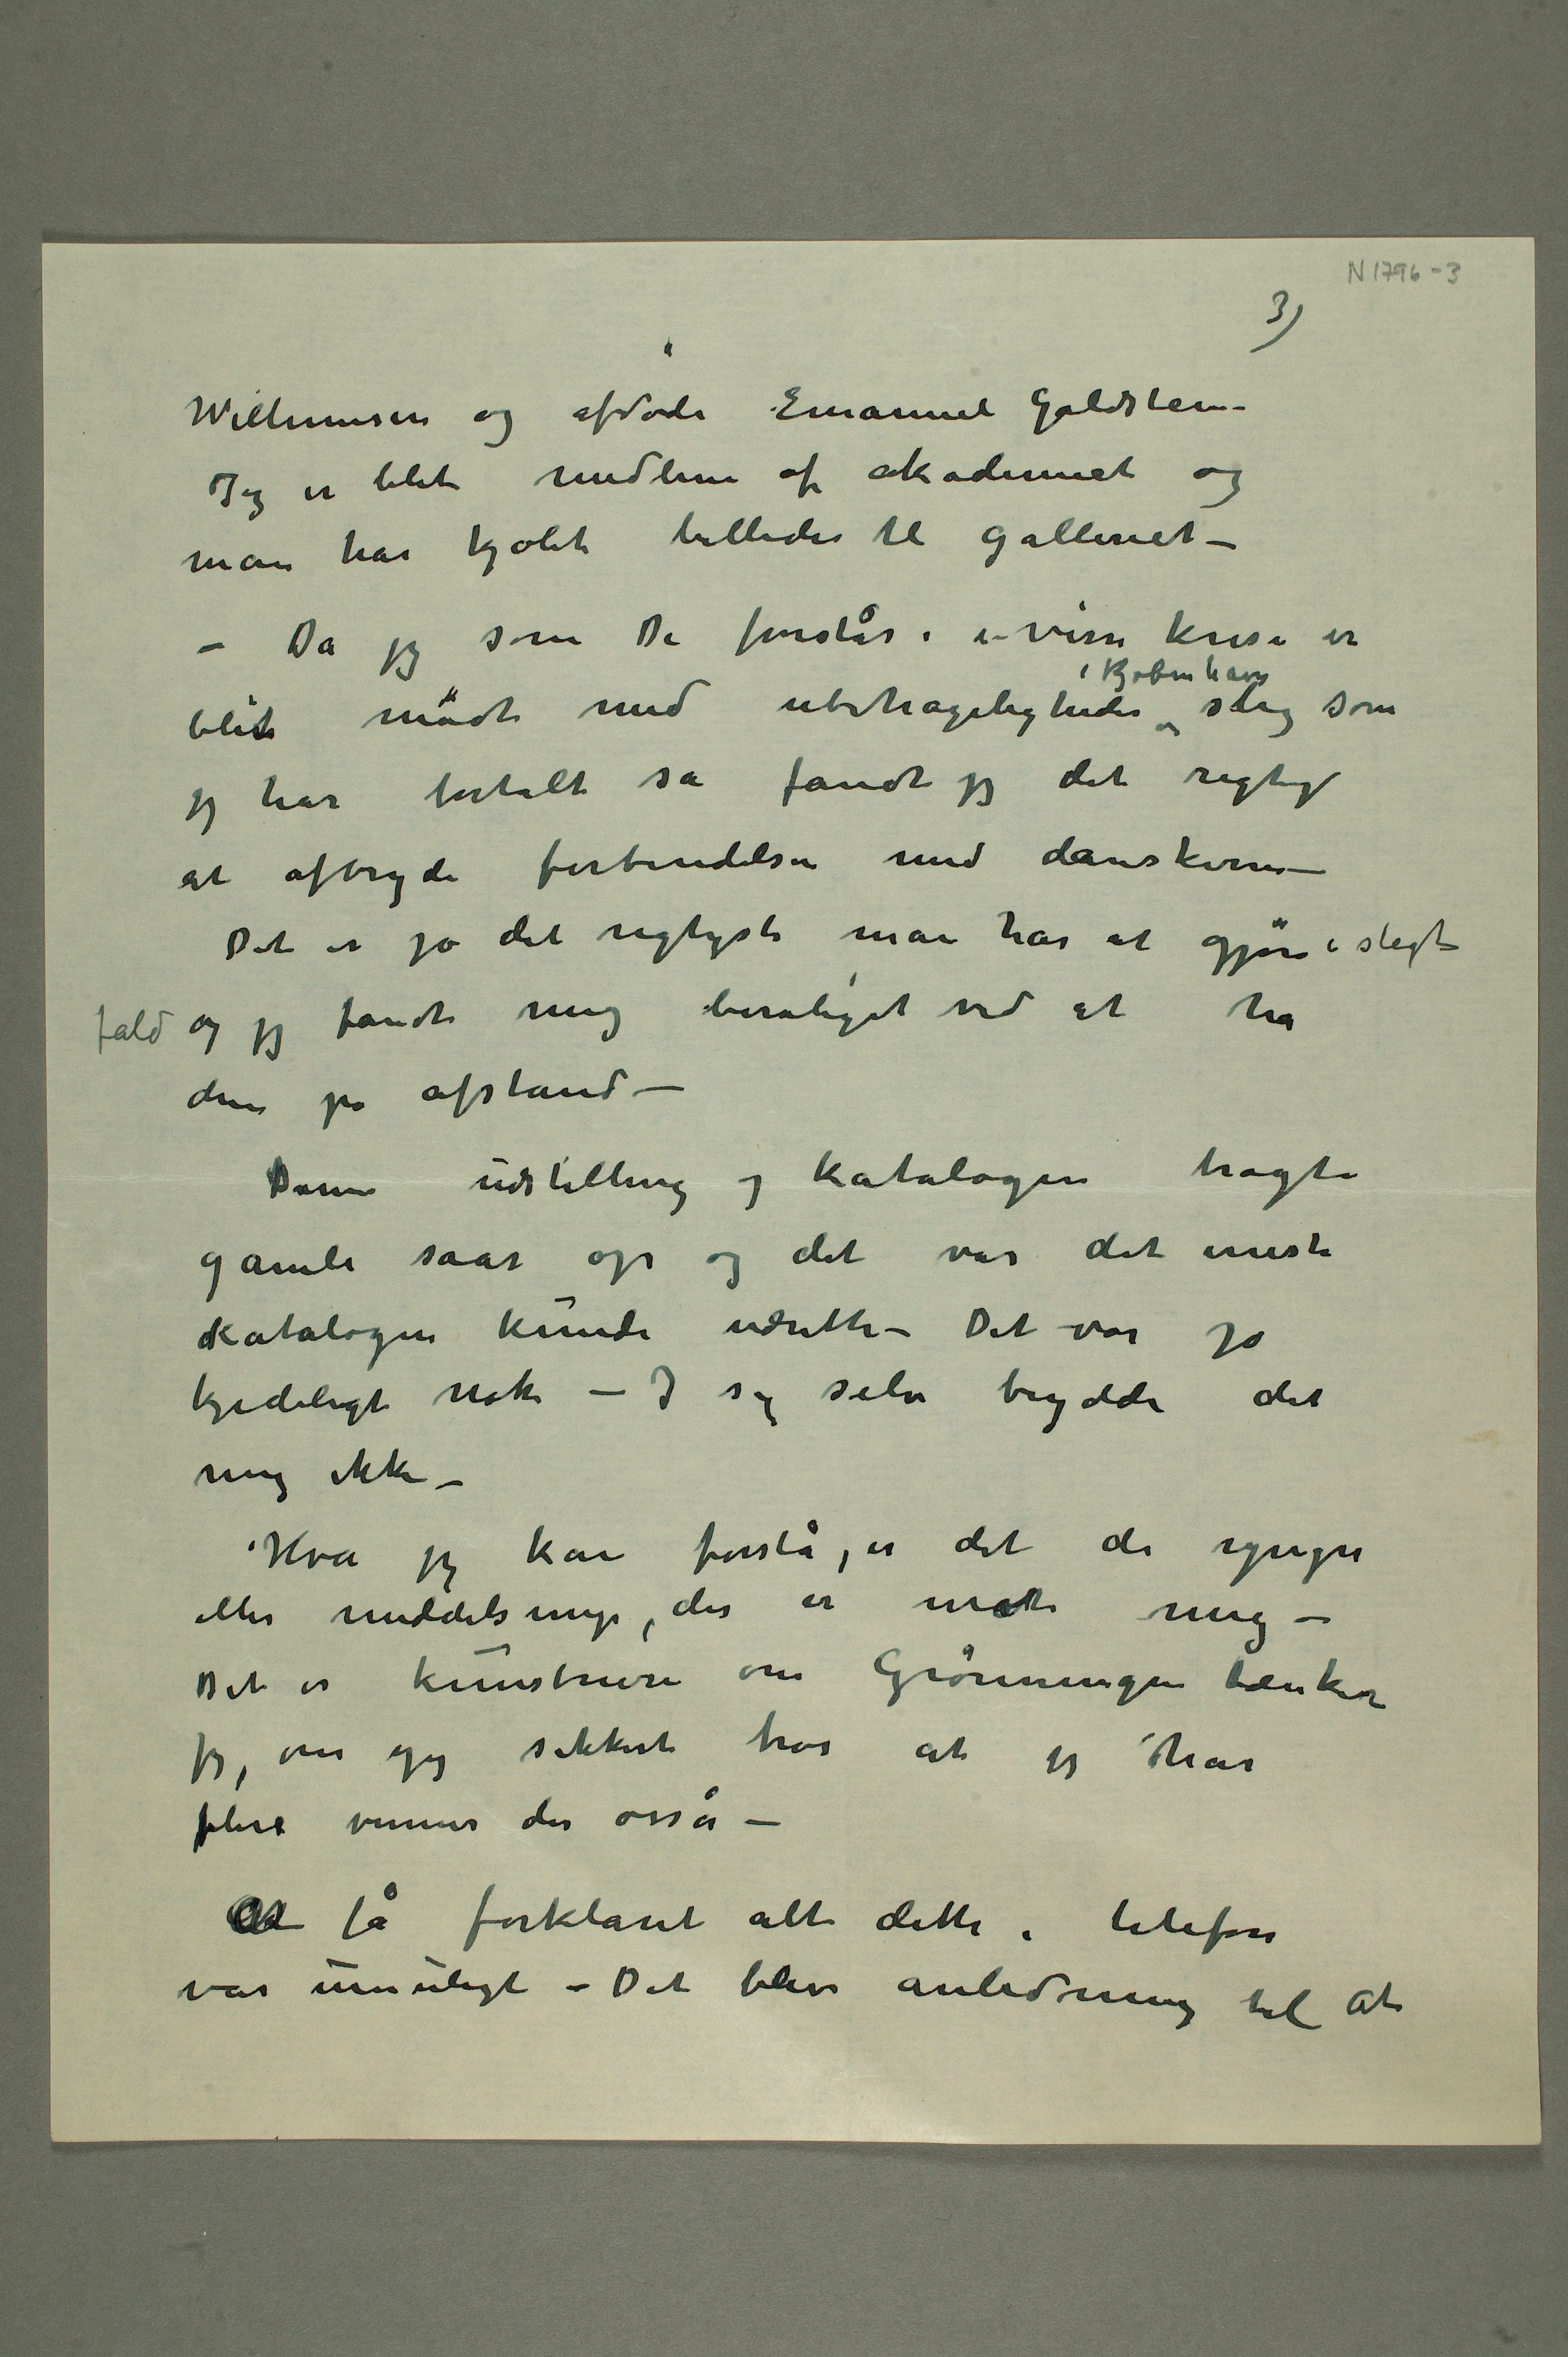 N 1796-3
3)
Willumsen og afdøde Emanuel Goldstein
Jeg er blit medlem af akademiet og
man har kjøbt billeder til galleriet –
– Da jeg som De forstår i visse krese er
blit mødt med ubehageligheder i Kjøbenhavn slig som
jeg har fortalt så fandt jeg det rigtigt
at afbryde forbindelsen med danskerne –
Det er jo det rigtigste man har at gjøre i sligt
fald og jeg fandt mig beroliget ved at ha
dem på afstand –
Denne udstilling og katalogen bragte
gamle saar op og det var det eneste
katalogen kunde udrette – Det var jo
kjedeligt nok – I sig selv brydde det
mig ikke –
Hva jeg kan forstå, er det de yngre
eller middels unge, der er mot mig –
Det er kunstnere om Grønningen tænker
jeg, om jeg sikkert tror at jeg har
flere venner der også –
At få forklaret alt dette i telefon
var umuligt – Det blev anledning til at